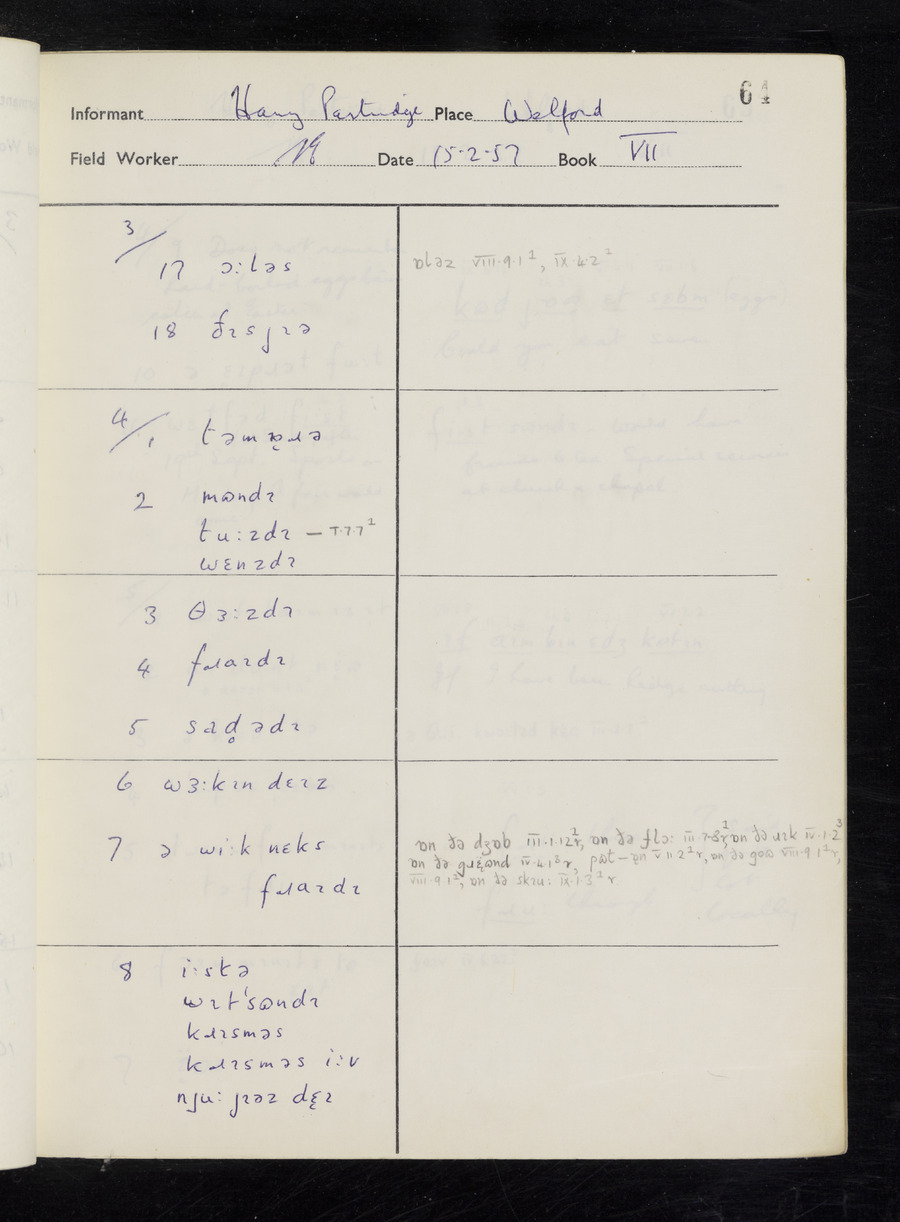 64
Informant Harry Partridge Place Welford
Field Worker Date 15-2-57 Book VII
3/
17 ɔ:ləs
ɒləz VIII·9·1², IX·4·2²
18 ðɪsjɪə
4/1 təmɒ̜ɹə
2 mɷndɪ
tu:zdɪ — V·7·7²
wɛnzdɪ
3 θɜ:zdɪ
4 fɹaɪdɪ
5 sad̥ədɪ
6 wɜ:kɪn dɛɪz
7 ə wi:k nɛks
fɹaɪdɪ
ɒn ðə dʒɒb III·1·12²r, ɒn ðə flɔ: ɒn ðə ɹɪk IV·1·2³
ɒn ðə gɹɛ̜ɷnd IV·4·1³r, pɷt-ɒn V·11·2²r, ɒn ðə gɒɷ VIII·9·1²r,
VIII·9·1², ɒn ðə skɹu: IX·1·3²r
8 i:stə
wɪt'sɷndɪ
kɹɪsməs
kɹɪsməs i:v
nju: jɪəz dɛ̜ɪ